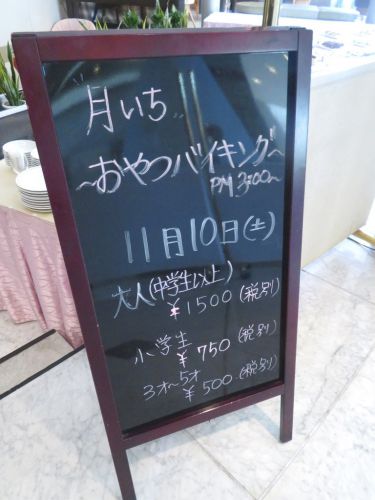 月いち
～おやつバイキング～
PM 3:00～
11月10日(土)
大人(中学生以上)
¥1500(税別)
小学生
¥750(税別)
3才～5才
¥500(税別)